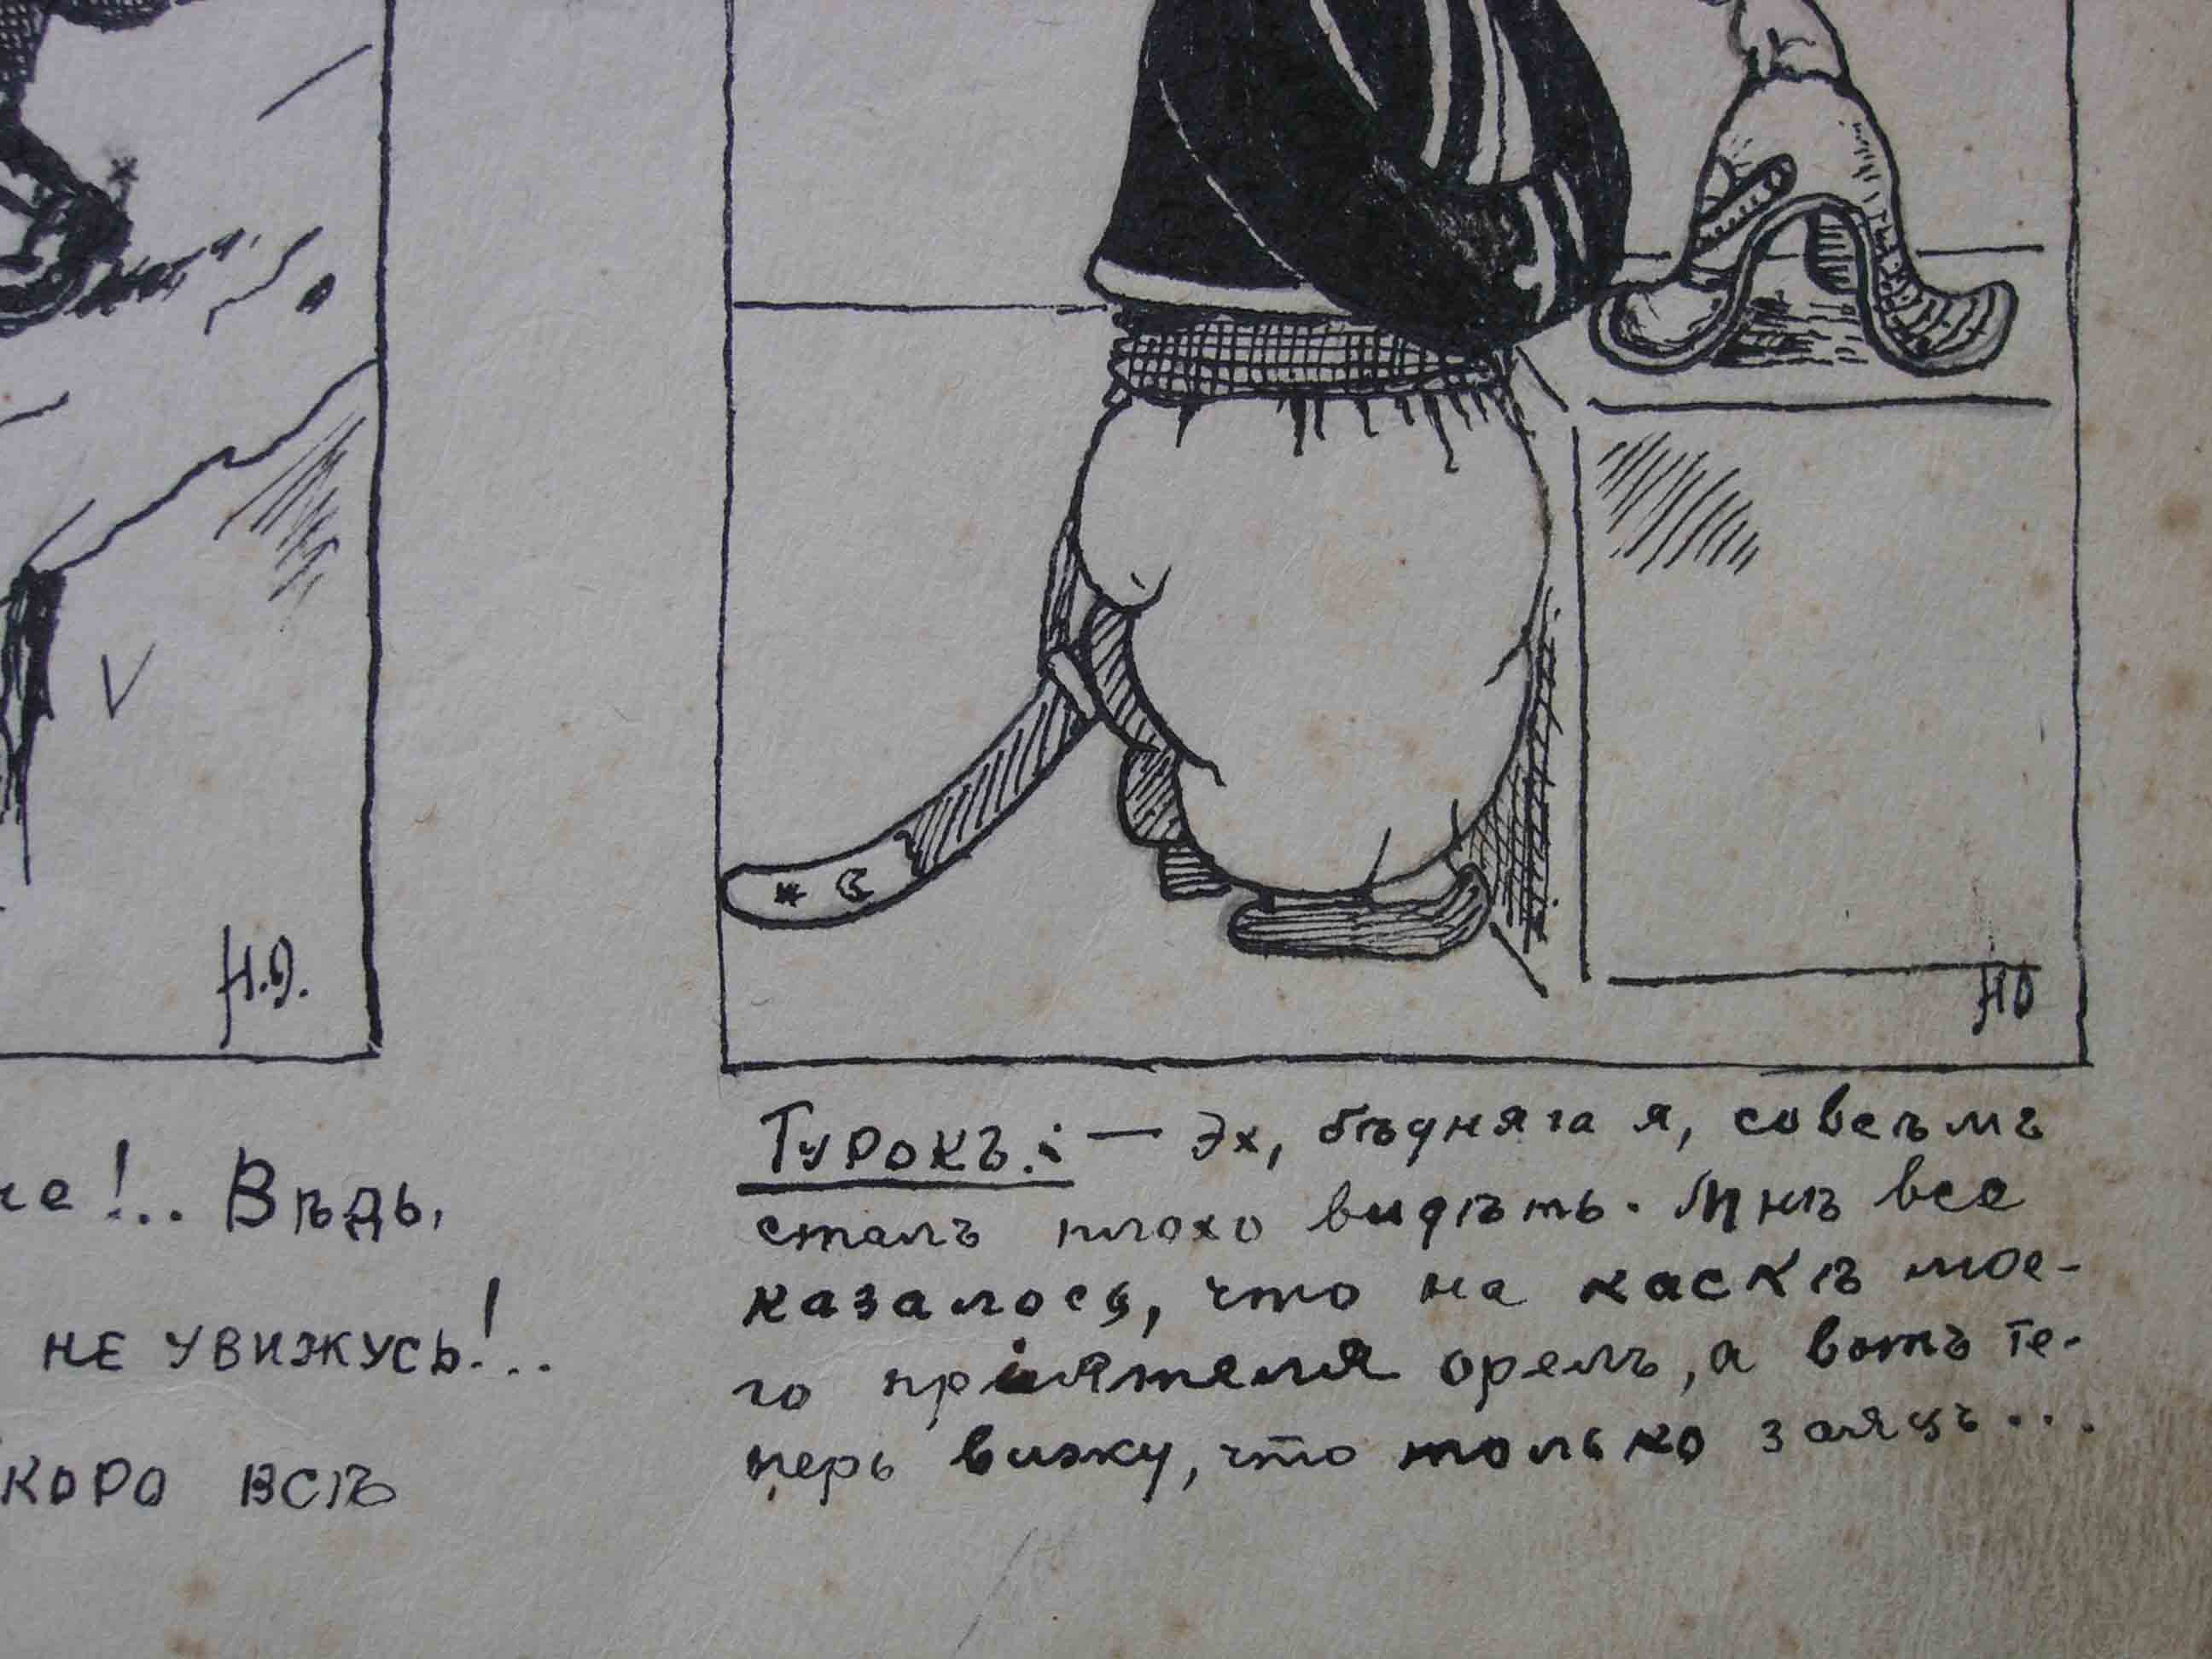 Н.О.
НО
че!.. Вѣдь,
не увижусь!..
коро всѣ
Турокъ.: — Эх, бѣдняга я, совсѣмъ
сталъ плохо видѣть. Мнѣ все
казалось, что на каскѣ мое-
го пріятеля орелъ, а вотъ те-
перь вижу, что только заяцъ...